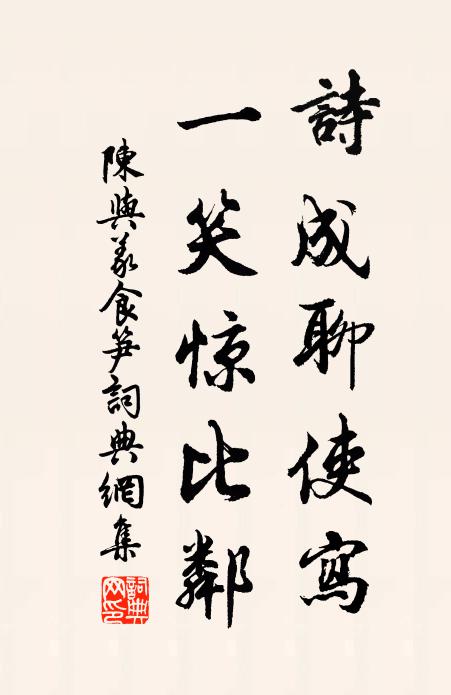 詩成聊使寫
一笑惊比鄰
陳與義食笋詞典網集
詞典網印